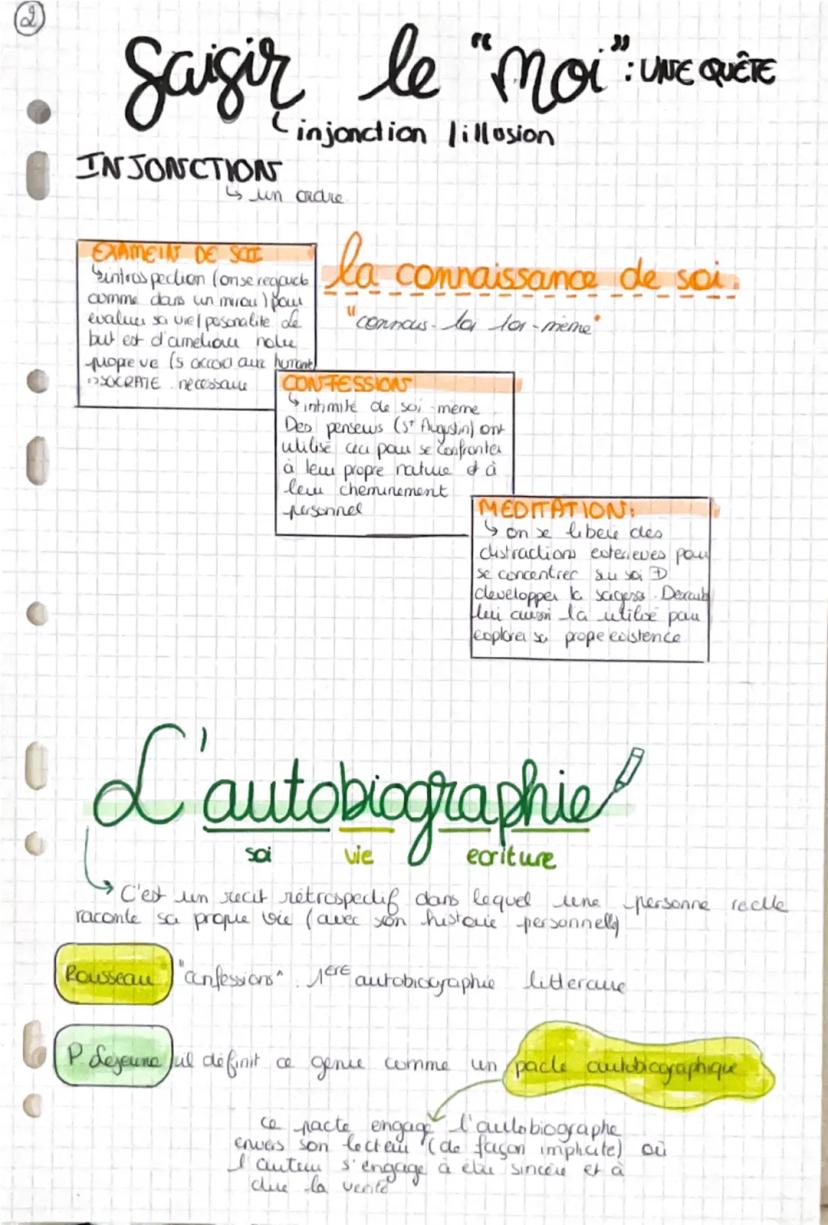 2
Saisir le "Moi" : UNE QUÊTE
injonction / illusion
INJONCTION
↳ un ordre
EXAMEIN DE SOI
↳ introspection (on se regarde
comme dans un miroir) pour
évaluer sa vie/personalité le
but est d'améliorer notre
propre vie (s accord aux humains
=> SOCRATE nécessaire
la connaissance de soi
"connais-toi toi-même"
CONFESSION
↳ intimité de soi-même
Des penseurs (St Augustin) ont
utilisé ceci pour se confronter
à leur propre nature et à
leur cheminement
personnel
MEDITATION:
↳ on se libère des
distractions exterieures pour
se concentrer sur soi
developper la sagesse. Descartes
lui aussi l'a utilisé pour
explorer sa propre existence
L'autobiographie
soi vie ecriture
↳ C'est un recit rétrospectif dans lequel une personne reelle
raconte sa propre vie (avec son histoire personnelle)
Rousseau "confessions" : 1ERE autobiographie litteraire
P. Lejeune lui définit ce genre comme un pacte autobiographique
ce pacte engage l'autobiographe
envers son lecteur (de façon implicite) où
l'auteur s'engage à être sincère et à
dire la verité